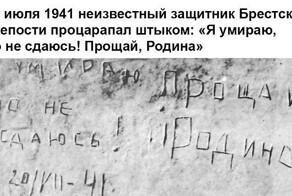 июля 1941 неизвестный защитник Брестск
епости процарапал штыком: «Я умираю,
о не сдаюсь! Прощай, Родина»
УМИРАЮ
ПРОЩА
НО НЕ
СДАЮСЬ!
РОДИНА
20/VII-41